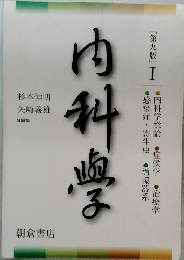 [第九版] I
●内科学総論 ●症候学 ●治療学
●感染症・寄生虫 ●循環器系
内科學
杉本恒明
矢崎義雄
総編集
朝倉書店